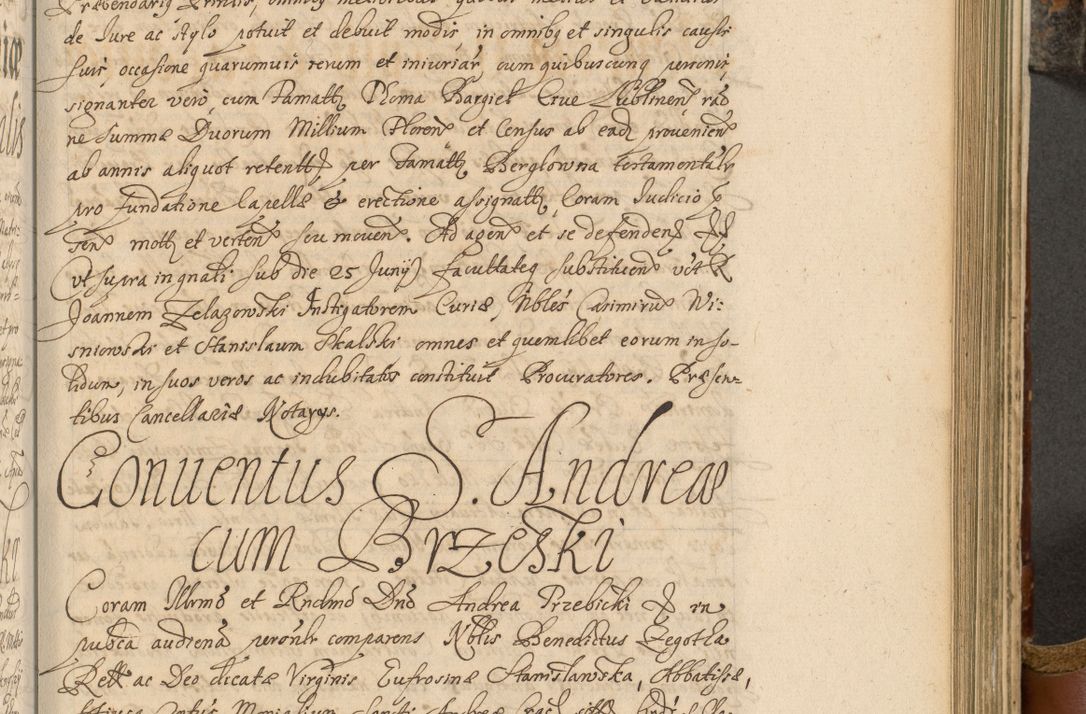 de Iure ac stylo potuit et debuit modis in omnibq et singulis causis
suis, occasione quarumuis rerum et iniuriar, cum quibuscunq personis,
signanter vero, cum Famatt Thoma Bargiel Ciue Lublinen
ne summæ Duorum Millium Floren et Census ab eadz prouenien
ab annis aliquot retentt, per Famatt Berglowna testamentalr
pro fundatione Capellæ & erectione assignatt, Coram Iudicio
sen mott et verten seu mouen. Ad agen et se defenden
(vt supra in gnali sub die 25 Junij) facultateq substituen
Joannem Zelazowski Instigatorem Curiæ, Nbles Casimirum Wi:
sniowski et Stanislaum Skalski omnes et quemlibet eorum in so-
lidum, in suos veros ac indubitatos constituit Procuratores. Præsen-
tibus Cancellariæ Notarys.
Conuentus S. Andreæ
cum Brzeski
Coram Illrmo et Rndmo Dno Andrea Trzebicki
pubca audiena personlr comparens Nblis Benedictus Zegotha
Rette ac Deo dicatæ Virginis Eufrosinæ Stanislawska, Abbatissæ,